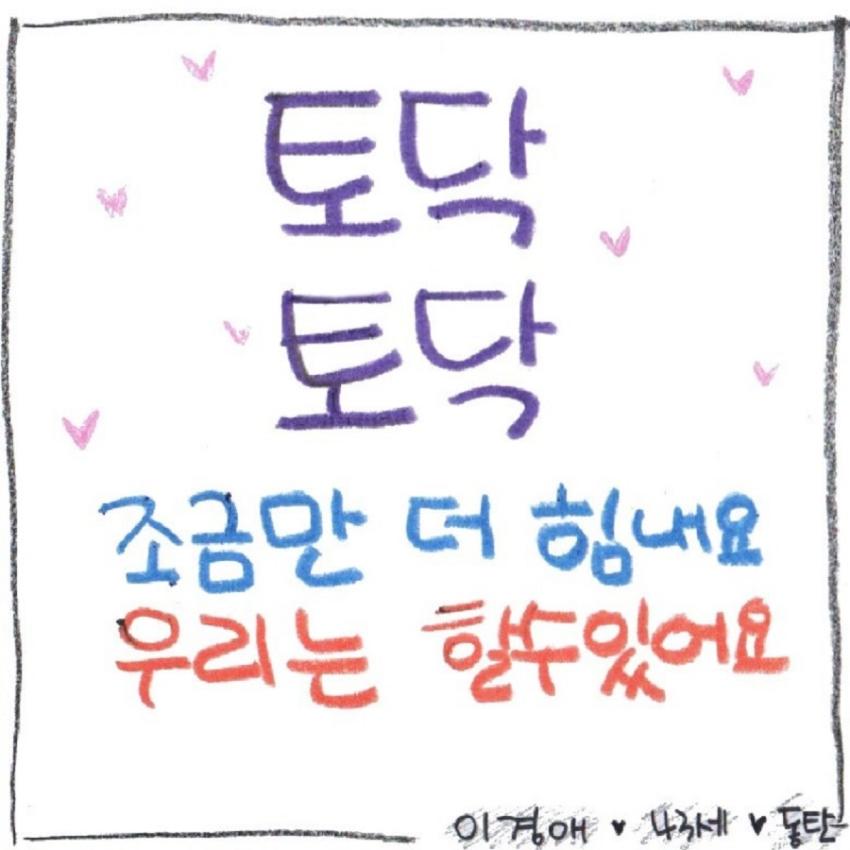 토닥
토닥
조금만 더 힘내요
우리는 할수있어요
이경애 ♥ 나라세 ♥ 동탄